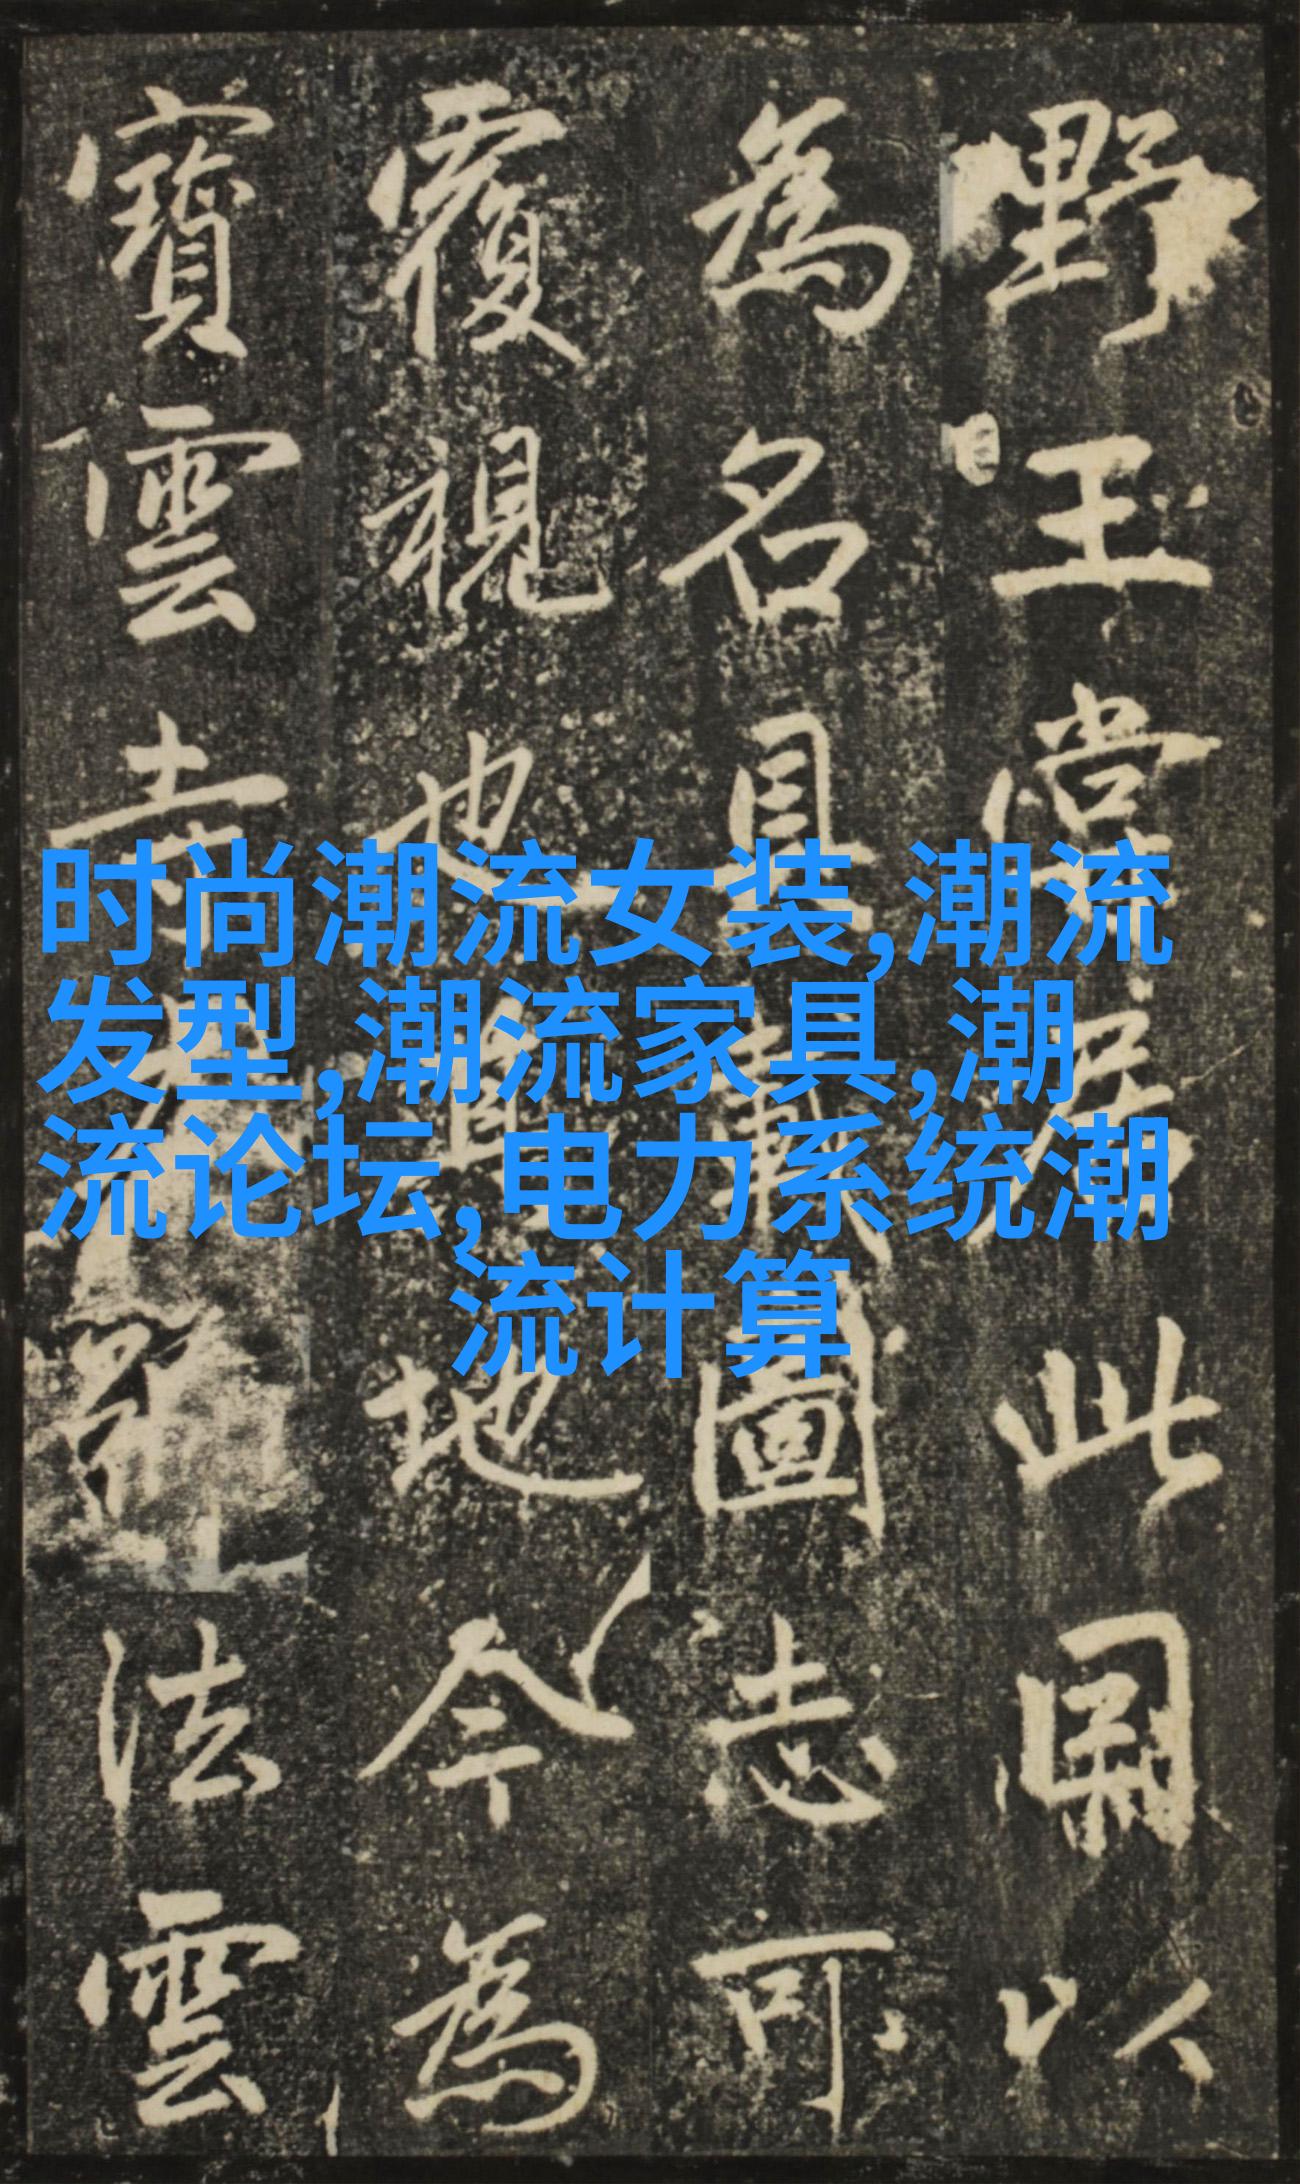 野王居此以
為名具載圖志可
覆視也地今為
寶雲寺法雲
时尚潮流女装,潮流
发型,潮流家具,潮
流论坛,电力系统潮
流计算